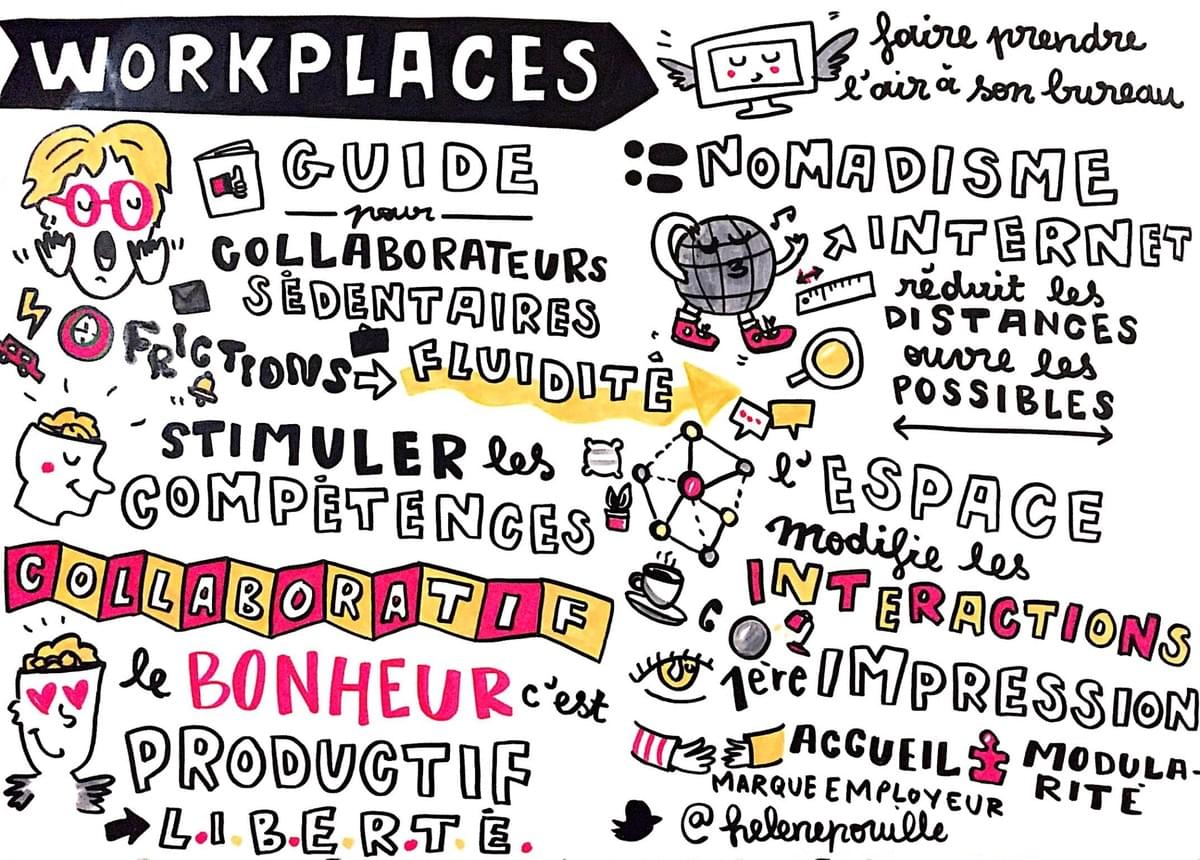 WORKPLACES
GUIDE
pour
COLLABORATEURS
SÉDENTAIRES
FRICTIONS
FLUIDITÉ
STIMULER les
COMPÉTENCES
COLLABORATIF
le BONHEUR c'est
PRODUCTIF
L.I.B.E.R.T.É.
faire prendre
l'air à son bureau
NOMADISME
INTERNET
réduit les
DISTANCES
ouvre les
POSSIBLES
l'ESPACE
modifie les
INTERACTIONS
1ère IMPRESSION
ACCUEIL MODULA-
RITÉ
MARQUE EMPLOYEUR
@helenepouille